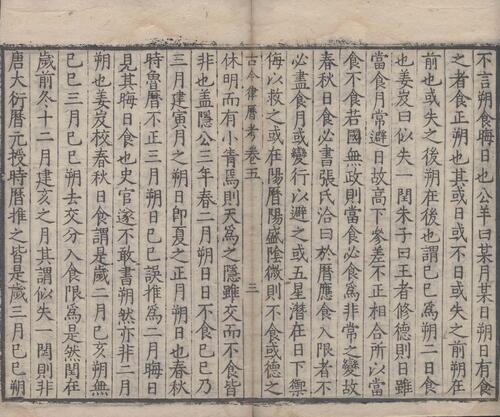 不言朔食晦日也公羊曰某月某日朔日有食
之者食正朔也其或日或不日或失之前朔在
前也或失之後朔在後也謂己巳為朔二日食
也姜岌曰似失一閏朱子曰王者修德則日雖
當食月常避日故高下參差不正相合所以當
食不食若國無政則當食必食為非常之變故
春秋日食必書張氏洽曰於曆應食入限者不
必盡食月或變行以避之或五星潛在日下禦
侮以救之或在陽曆陽盛陰微則不食或德之
古今律曆考 卷五 三
休明而有小青焉則天為之隱雖交而不食皆
非也蓋隱公三年春二月朔日日不食己巳乃
三月建寅月之朔日即夏之正月朔日也春秋
時魯曆不正三月朔日己巳誤推為二月晦日
見其晦日食也史官遂不敢書朔然亦非二月
朔也姜岌校春秋日食謂是歲二月己亥朔無
己巳三月己巳朔去交分入食限為是然閏在
歲前冬十二月建亥之月其謂似失一閏則非
唐大衍曆元授時曆推之皆是歲三月己巳朔